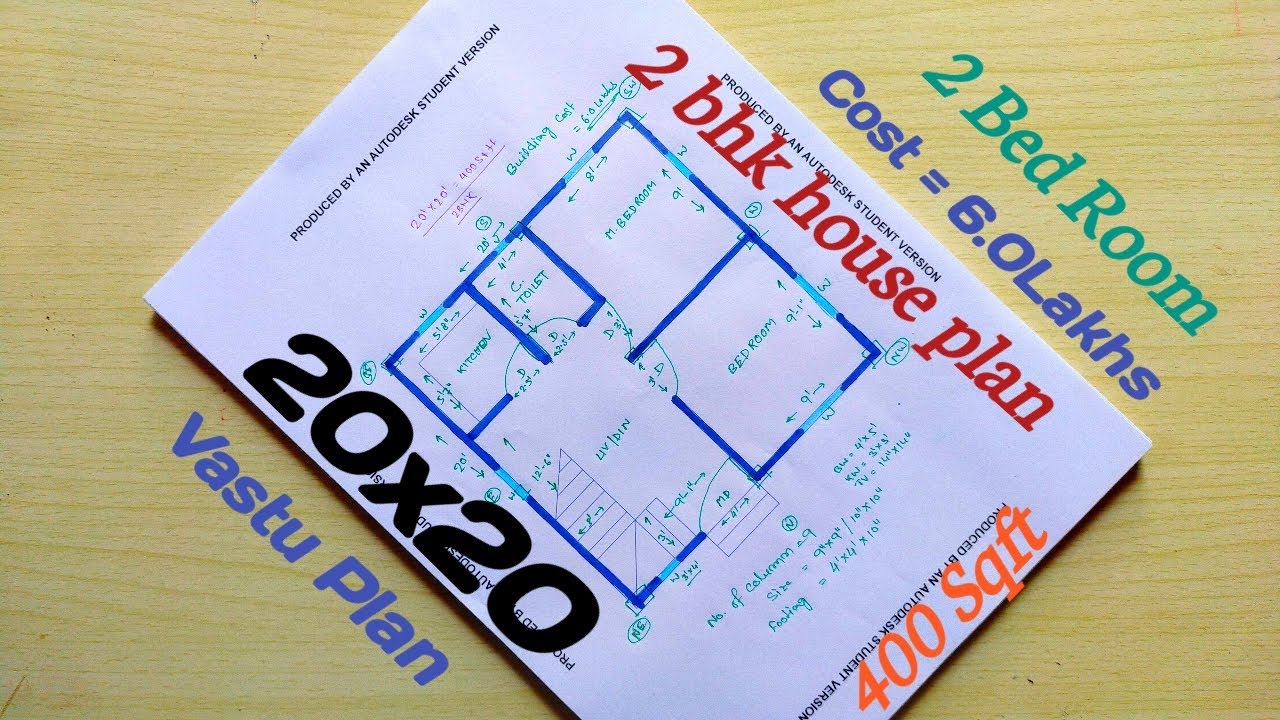 2 Bed Room
Cost = 6.0Lakhs
2 bhk house plan
20x20
Vastu Plan
400 Sqft
PRODUCED BY AN AUTODESK STUDENT VERSION
PRODUCED BY AN AUTODESK STUDENT VERSION
PRODUCED BY AN AUTODESK STUDENT VERSION
20'x20' = 400Sqft
2BHK
Building Cost
= 6.0 Lakhs
SW
W
8'
9'
M.BEDROOM
W
S
20'
4'
C.
TOILET
D
D
W
5'8"
KITCHEN
D
SE
20'
E
12'-6"
LIV/DIN
8'
3'
W
3'x4'
NE
9'-1"
BEDROOM
9'
W
W
NW
D
3'
MD
4'
N
No. of Column = 9
Size = 9"x9" / 10"x10"
Footing = 4'x4' / 10"